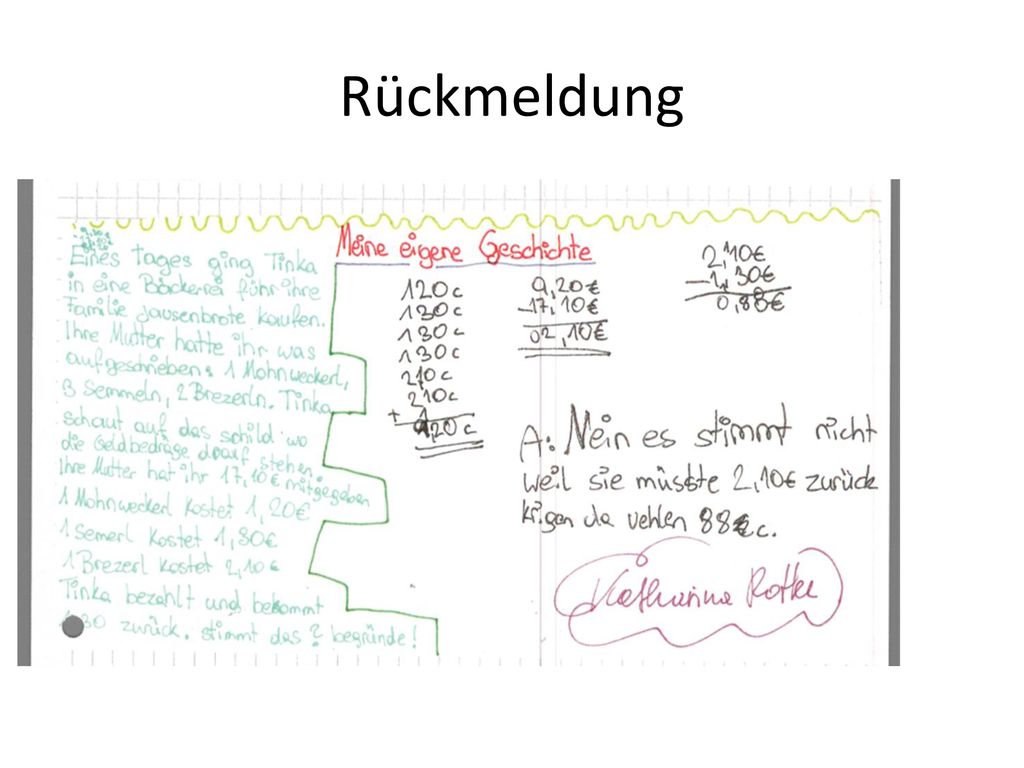 Rückmeldung
Meine eigene Geschichte
Eines Tages ging Tinka
in eine Bäckerei führ ihre
Familie Jausenbrote kaufen.
Ihre Mutter hatte ihr was
aufgeschrieben: 1 Mohnweckerl,
3 Semmeln, 2 Brezerln. Tinka
schaut auf das schild wo
die Geldbedräge drauf stehen.
Ihre Mutter hat ihr 17,10€ mitgegeben
1 Mohnweckerl kostet 1,20€
1 Semerl kostet 1,30€
1 Brezerl kostet 2,10€
Tinka bezahlt und bekommt
zurück. stimmt das? begründe!
120c
130c
130c
130c
210c
210c
+ 1
920c
9,20€
-17,10€
02,10€
2,10€
-1,30€
0,88€
A: Nein es stimmt nicht
weil sie müsste 2,10€ zurück
krigen da vehlen 88 c.
Katharina